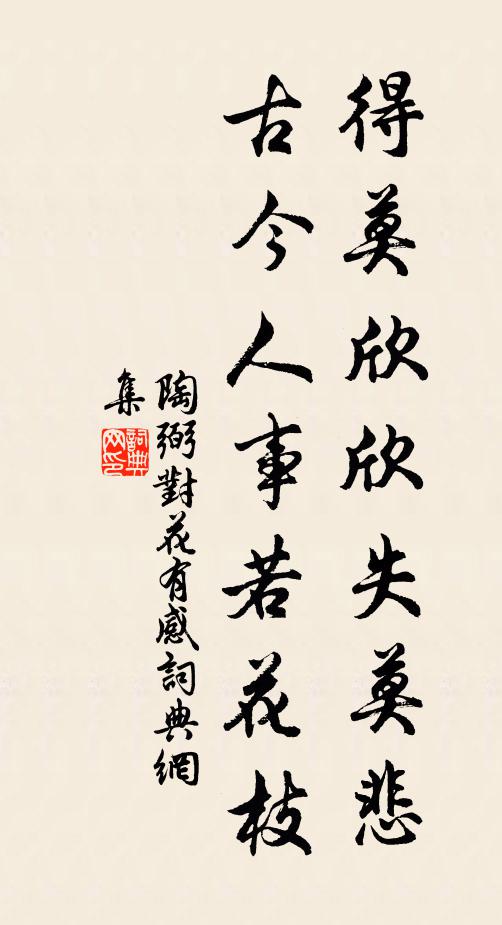 得莫欣欣失莫悲
古今人事若花枝
陶弼對花有感詞典網
集
詞典
网印